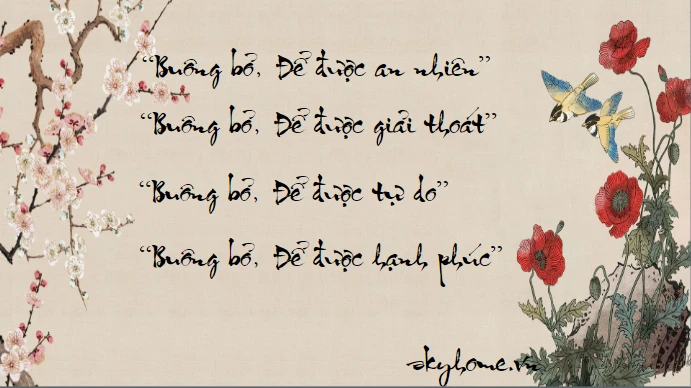 “Buông bỏ, Để được an nhiên”
“Buông bỏ, Để được giải thoát”
“Buông bỏ, Để được tự do”
“Buông bỏ, Để được hạnh phúc”
skyhome.vn